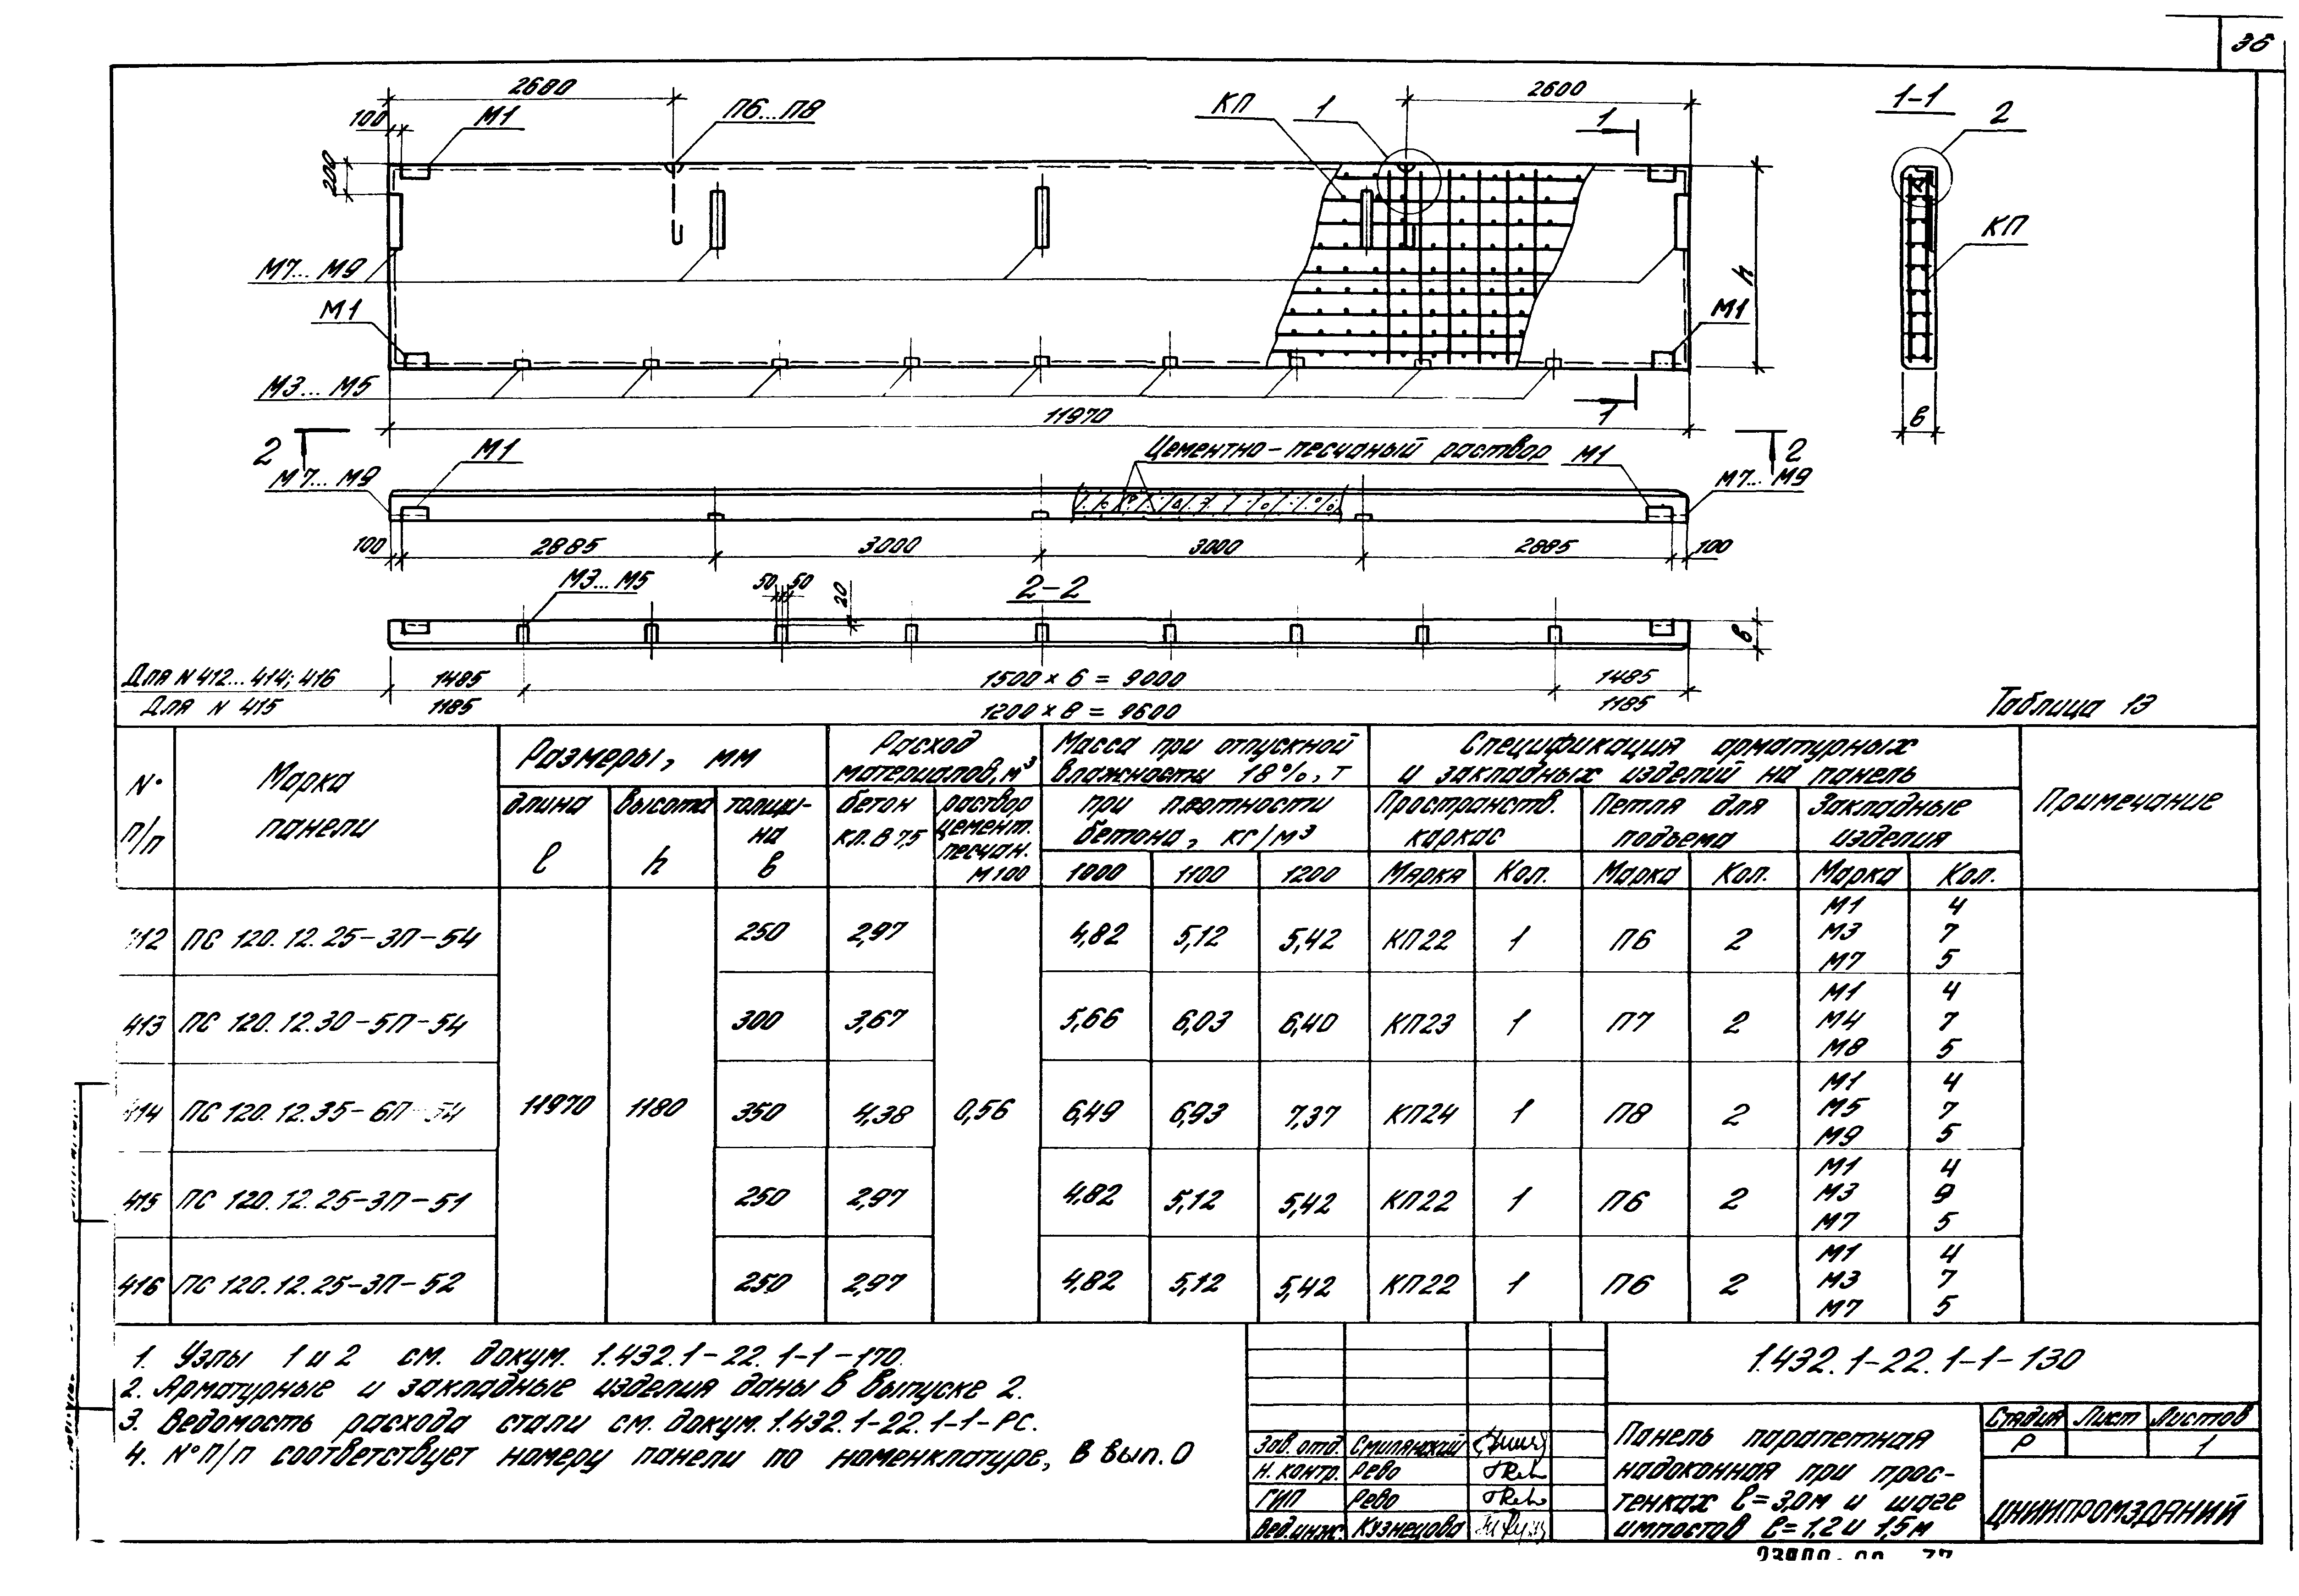 36
2680
2600
100
М1
П6...П8
КП
1
1
1-1
2
200
КП
h
М7... М9
М1
М1
М3... М5
1
11970
в
2
М1
Цементно-песчаный раствор
М1
2
М7... М9
М7... М9
100
2885
3000
3000
2885
100
М3... М5
50
50
20
2-2
в
Для N 412... 414; 416
1485
1500 × 6 = 9000
1485
Для N 415
1185
1200 × 8 = 9600
1185
Таблица 13
N° п/п
Марка панели
Размеры, мм
Расход материалов, м³
Масса при отпускной влажности 18%, т
Спецификация арматурных и закладных изделий на панель
Примечание
длина l
высота h
толщина в
бетон кл. В 7,5
раствор цемент. песчан. М100
при плотности бетона, кг/м³
Пространств. каркас
Петля для подъема
Закладные изделия
1000
1100
1200
Марка
Кол.
Марка
Кол.
Марка
Кол.
412 ПС 120.12.25-3П-54 250 2,97 4,82 5,12 5,42 КП22 1 П6 2
М1 4
М3 7
М7 5
413 ПС 120.12.30-5П-54 300 3,67 5,66 6,03 6,40 КП23 1 П7 2
М1 4
М4 7
М8 5
414 ПС 120.12.35-6П-54 11970 1180 350 4,38 0,56 6,49 6,93 7,37 КП24 1 П8 2
М1 4
М5 7
М9 5
415 ПС 120.12.25-3П-51 250 2,97 4,82 5,12 5,42 КП22 1 П6 2
М1 4
М3 9
М7 5
416 ПС 120.12.25-3П-52 250 2,97 4,82 5,12 5,42 КП22 1 П6 2
М1 4
М3 7
М7 5
1. Узлы 1 и 2 см. докум. 1.432.1-22.1-1-170.
2. Арматурные и закладные изделия даны в выпуске 2.
3. Ведомость расхода стали см. докум. 1.432.1-22.1-1-РС.
4. N° п/п соответствует номеру панели по номенклатуре, в вып. 0
1.432.1-22.1-1-130
Зав. отд. Смилянский
Н. контр. Рево
ГИП Рево
Вед. инж. Кузнецова
Панель парапетная
надоконная при прос-
тенках l=3,0м и шаге
импостов l=1,2 и 1,5м
Стадия Лист Листов
Р 1
ЦНИИПРОМЗДАНИЙ